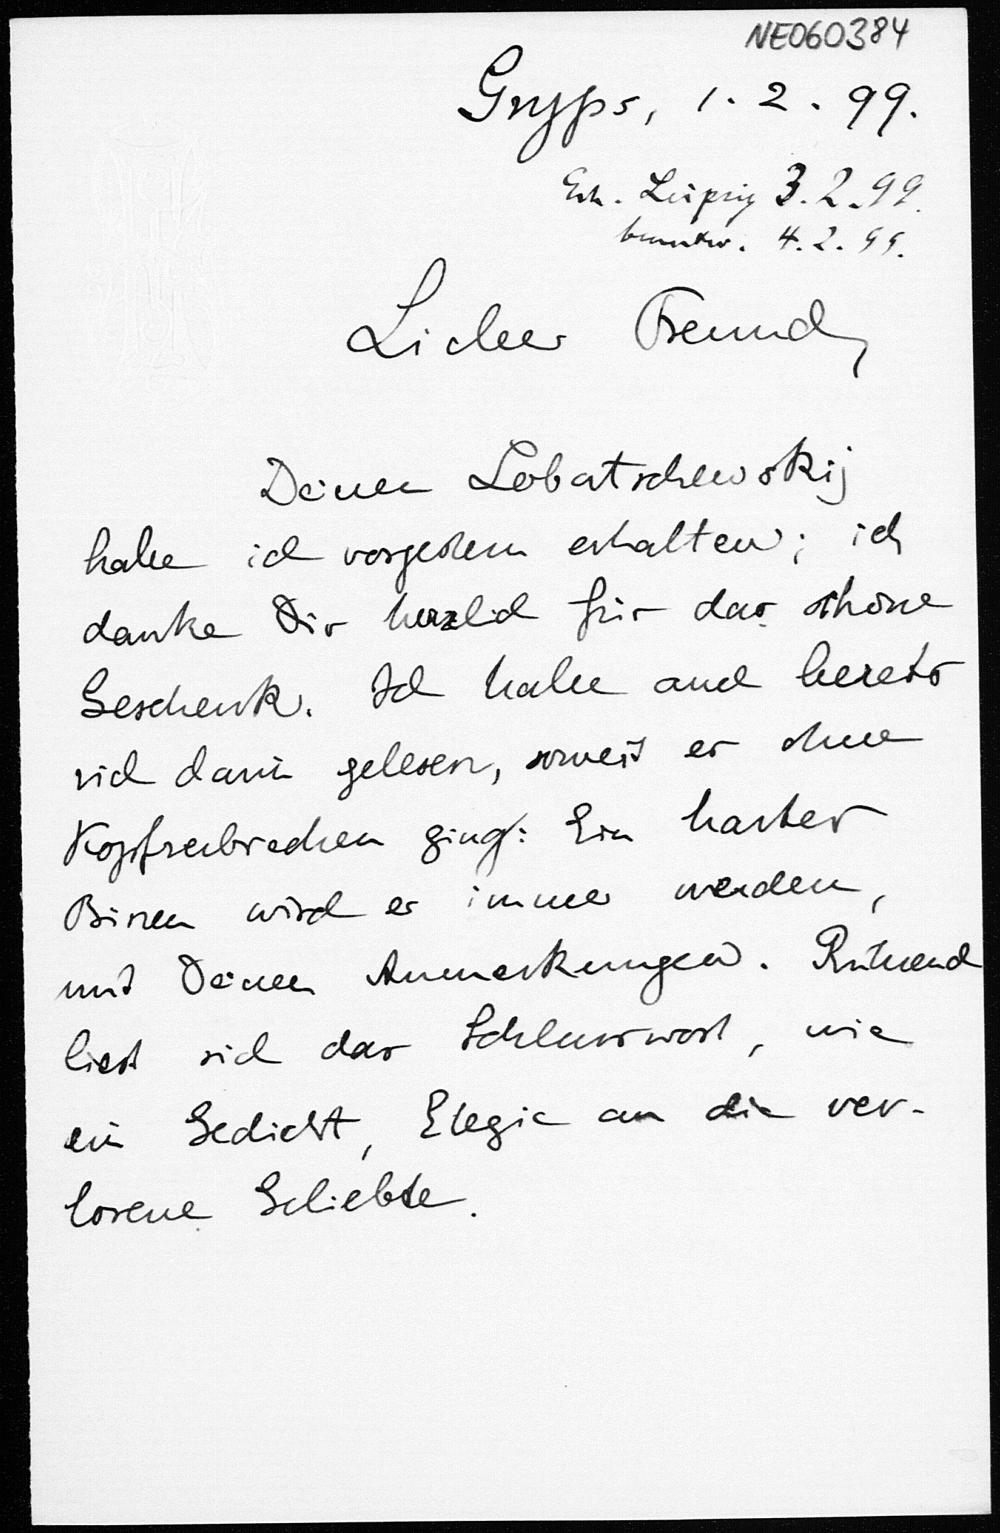 NE060384
Gryps, 1.2.99.
Erh. Leipzig 3.2.99.
beantw. 4.2.99.
Lieber Freund,
Deinen Lobatschewskij
habe ich vorgestern erhalten; ich
danke Dir herzlich für das schöne
Geschenk. Ich habe auch bereits
viel darin gelesen, soweit es ohne
Kopfzerbrechen ging: Ein harter
Bissen wird es immer werden,
mit Deinen Anmerkungen. Rührend
liest sich das Schlusswort, wie
ein Gedicht, Elegie an die ver-
lorene Geliebte.